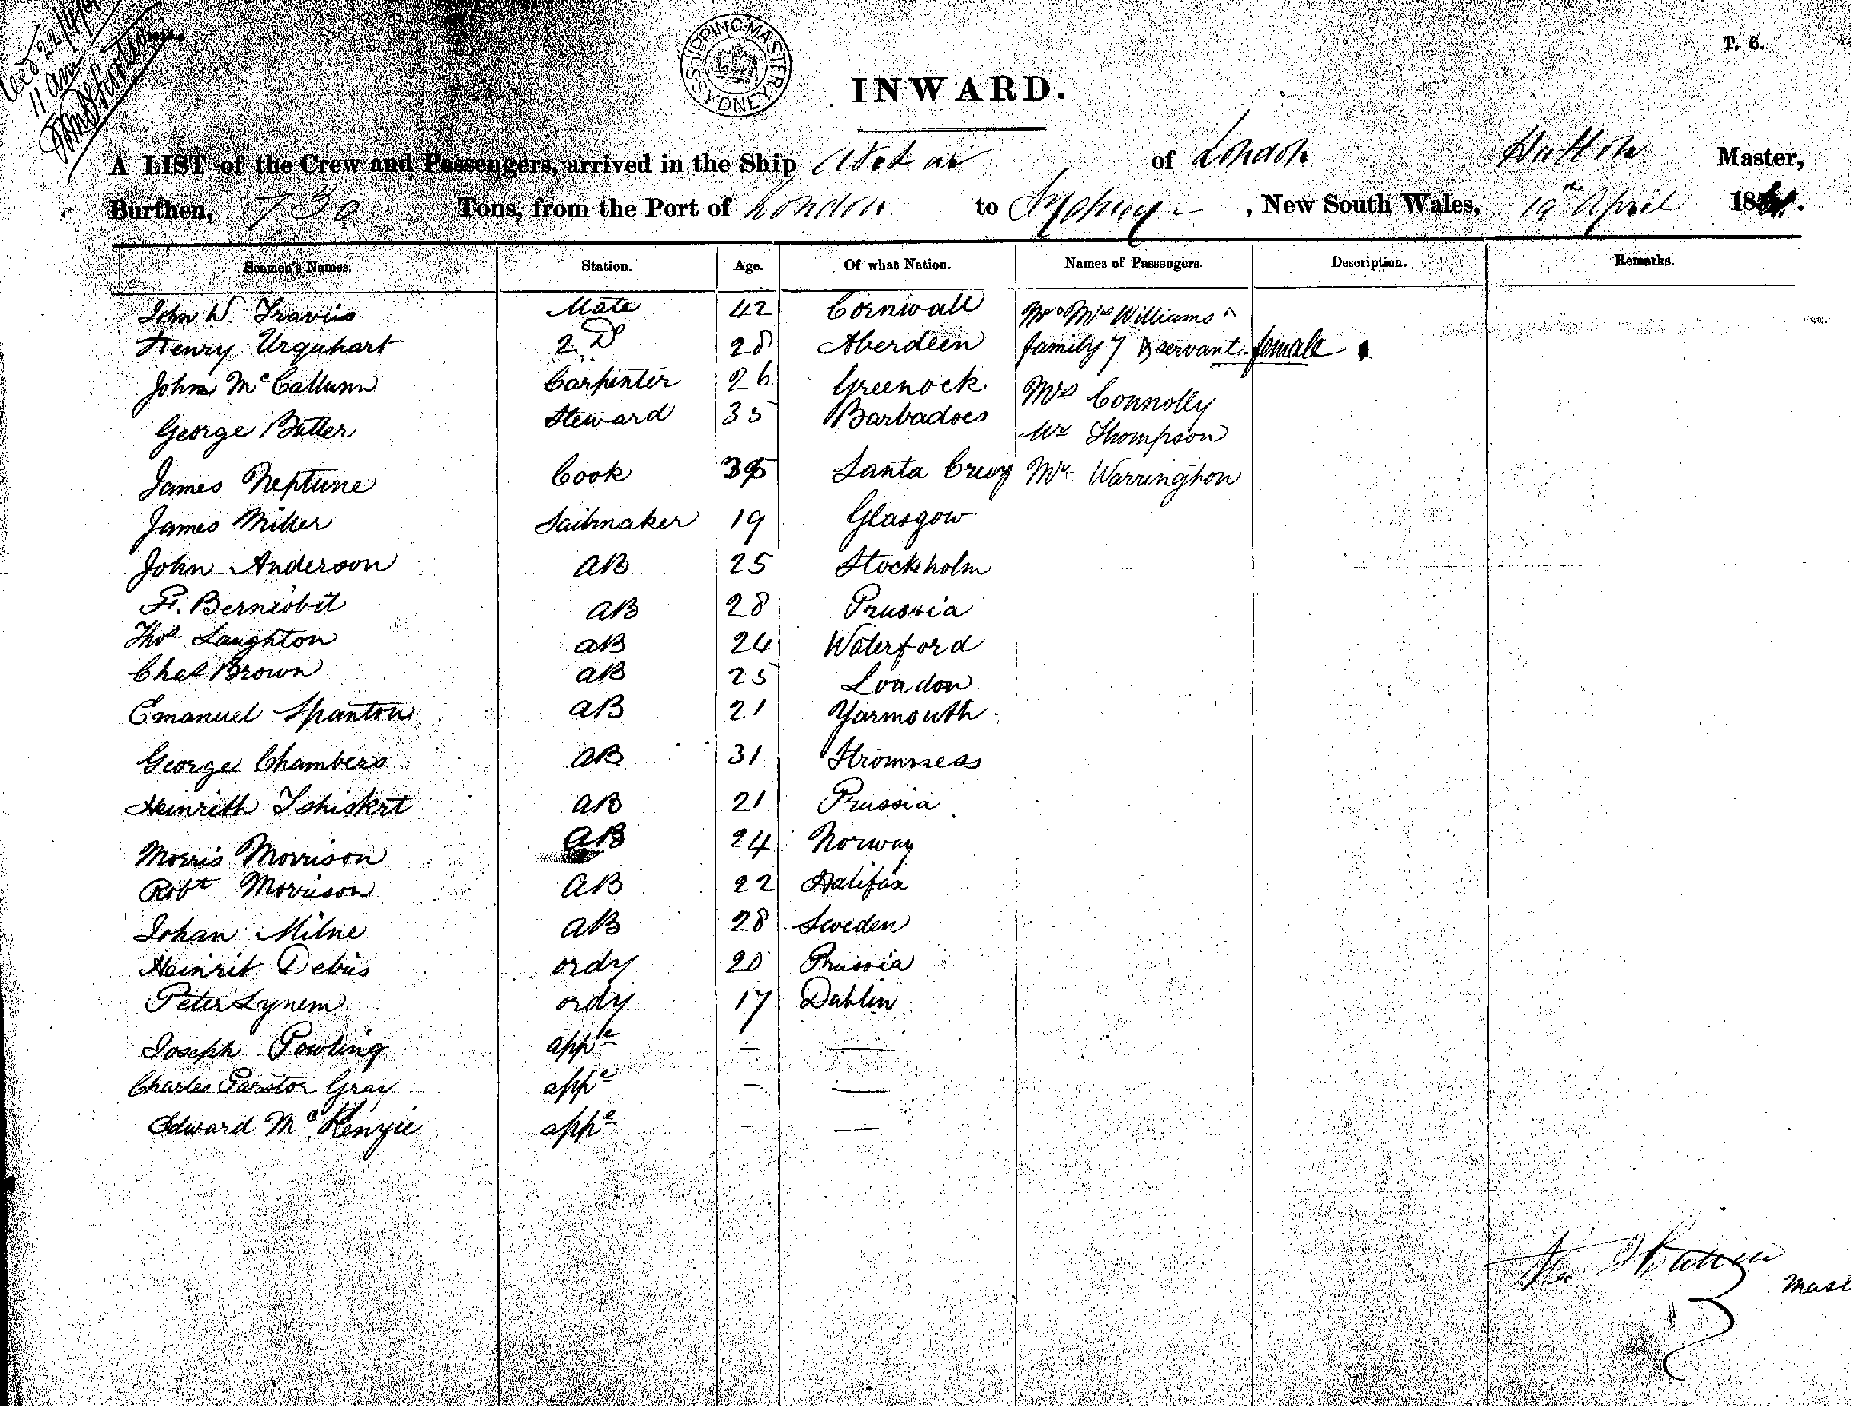 11 am
SHIPPING MASTER SYDNEY
T. 6.
INWARD.
A LIST of the Crew and Passengers, arrived in the Ship of London Hutton Master,
Burthen, 730 Tons, from the Port of London to Sydney, New South Wales, April 18
Seamen's Names. Station. Age. Of what Nation. Names of Passengers. Description. Remarks.
John W. Traviss Mate 42 Cornwall Mr & Mrs Williams &
Henry Urquhart 2 Do 28 Aberdeen family 7 & servant female
John McCallum Carpenter 26 Greenock Mrs Connolly
George Butler Steward 35 Barbadoes Mr Thompson
James Neptune Cook 35 Santa Cruz Mr Warrington
James Miller Sailmaker 19 Glasgow
John Anderson AB 25 Stockholm
F. Bernisbit AB 28 Prussia
Thos Laughton AB 24 Waterford
Chas Brown AB 25 London
Emanuel Spanton AB 21 Yarmouth
George Chambers AB 31 Stromness
Heinrith AB 21 Prussia
Morris Morrison AB 24 Norway
Robt Morrison AB 22 Halifax
Johan Milne AB 28 Sweden
Heinrit Debus ordy 20 Prussia
Peter Lynem ordy 17 Dublin
Joseph Powling appe — —
Charles Gray appe — —
Edward McKenzie appe — —
Hutton